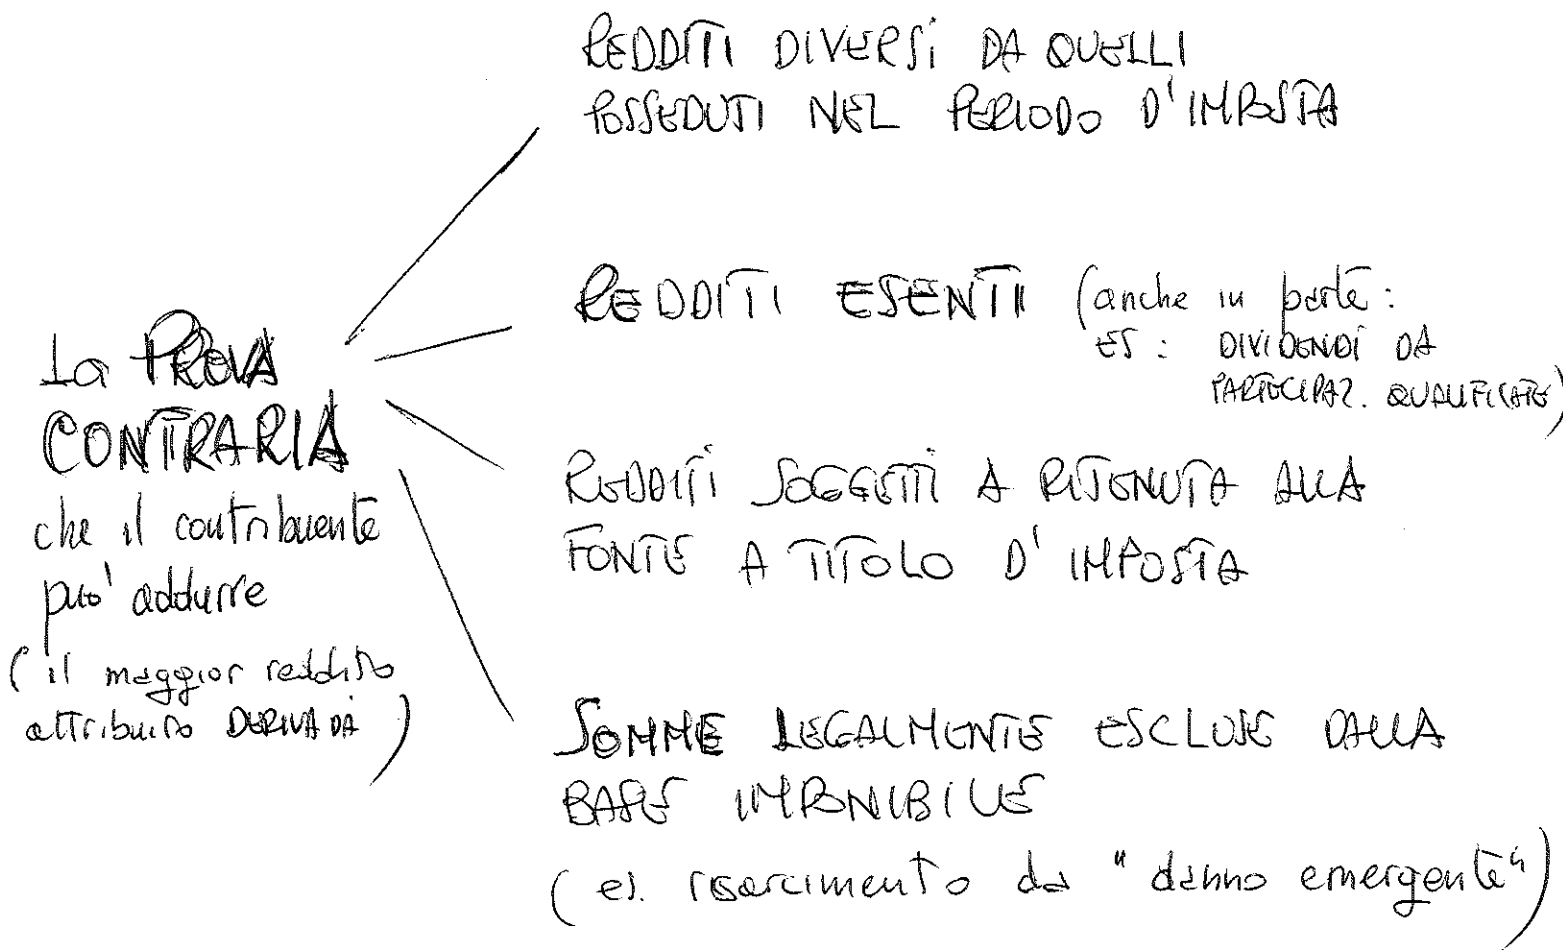 La PROVA
CONTRARIA
che il contribuente
può addurre
(il maggior reddito
attribuito DERIVA DA)
REDDITI DIVERSI DA QUELLI
POSSEDUTI NEL PERIODO D'IMPOSTA
REDDITI ESENTI (anche in parte:
ES: DIVIDENDI DA
PARTECIPAZ. QUALIFICATE)
REDDITI SOGGETTI A RITENUTA ALLA
FONTE A TITOLO D'IMPOSTA
SOMME LEGALMENTE ESCLUSE DALLA
BASE IMPONIBILE
(es. risarcimento da "danno emergente")